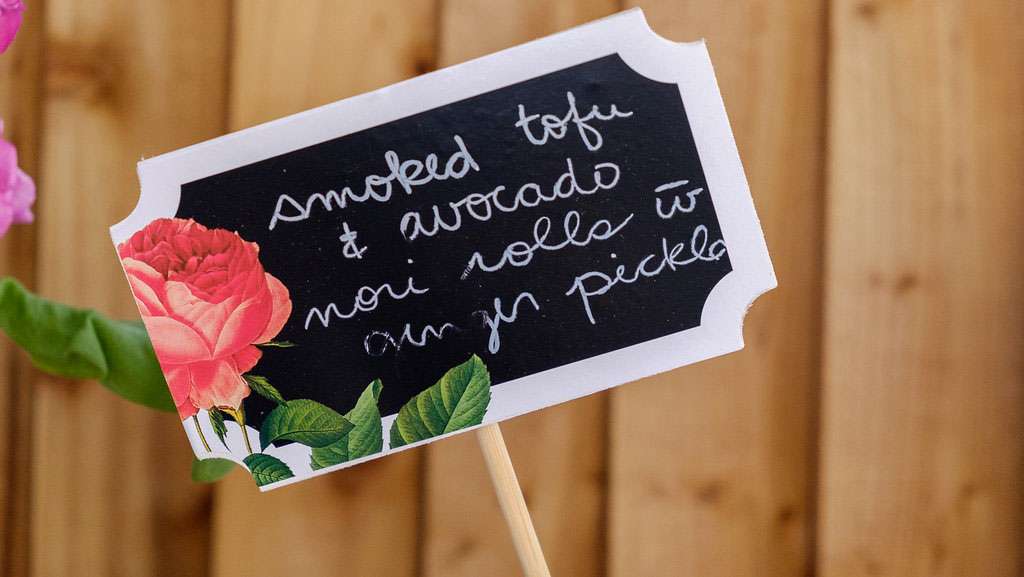 smoked tofu
& avocado
nori rolls w̅
ginger pickle